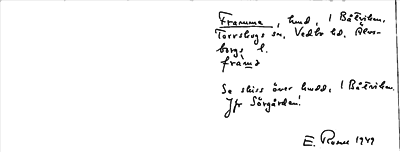 Framma, hmd, i Båtviken.
Torrskogs sn, Vedbo hd, Älvs-
borgs l.
fràma
Se skiss över hmdd, i Båtviken.
Jfr Sörgården!
E. Rosell 1949